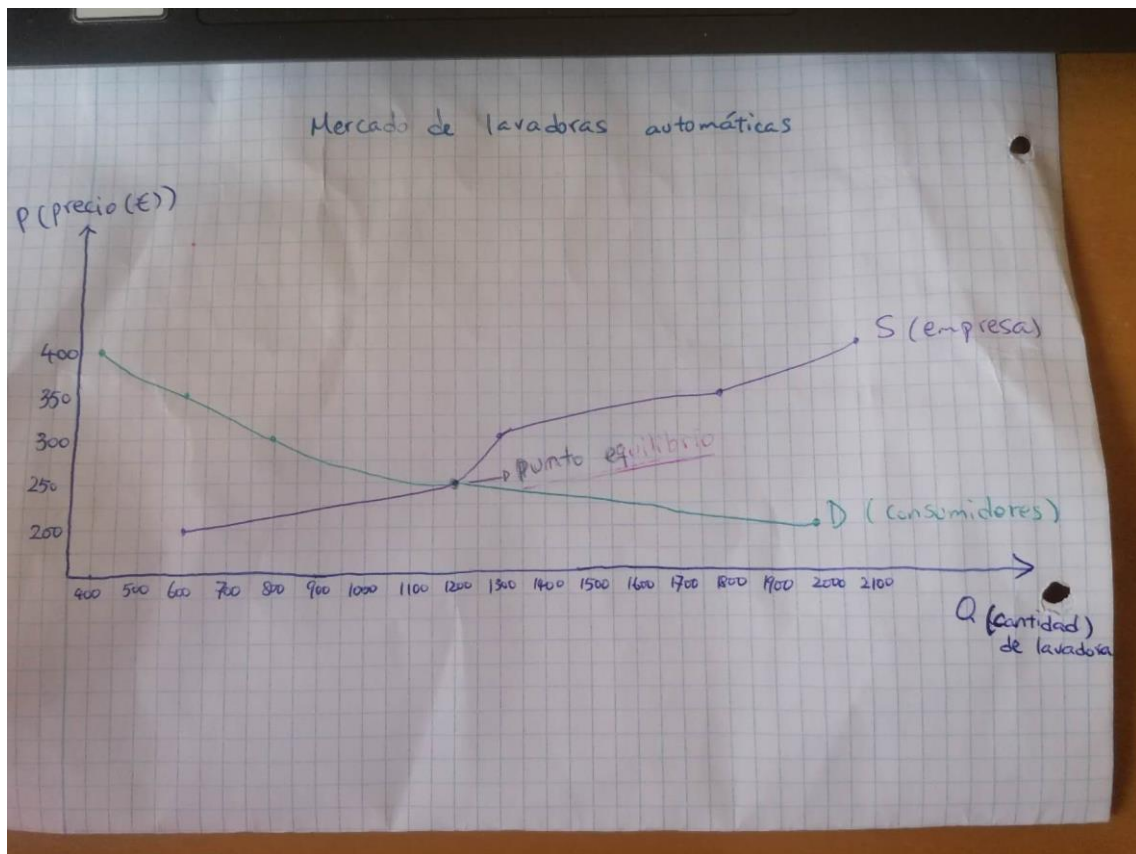 Mercado de lavadoras automáticas
P (precio (€))
400
350
300
250
200
S (empresa)
punto equilibrio
D (consumidores)
400 500 600 700 800 900 1000 1100 1200 1300 1400 1500 1600 1700 1800 1900 2000 2100
Q (cantidad)
de lavadora